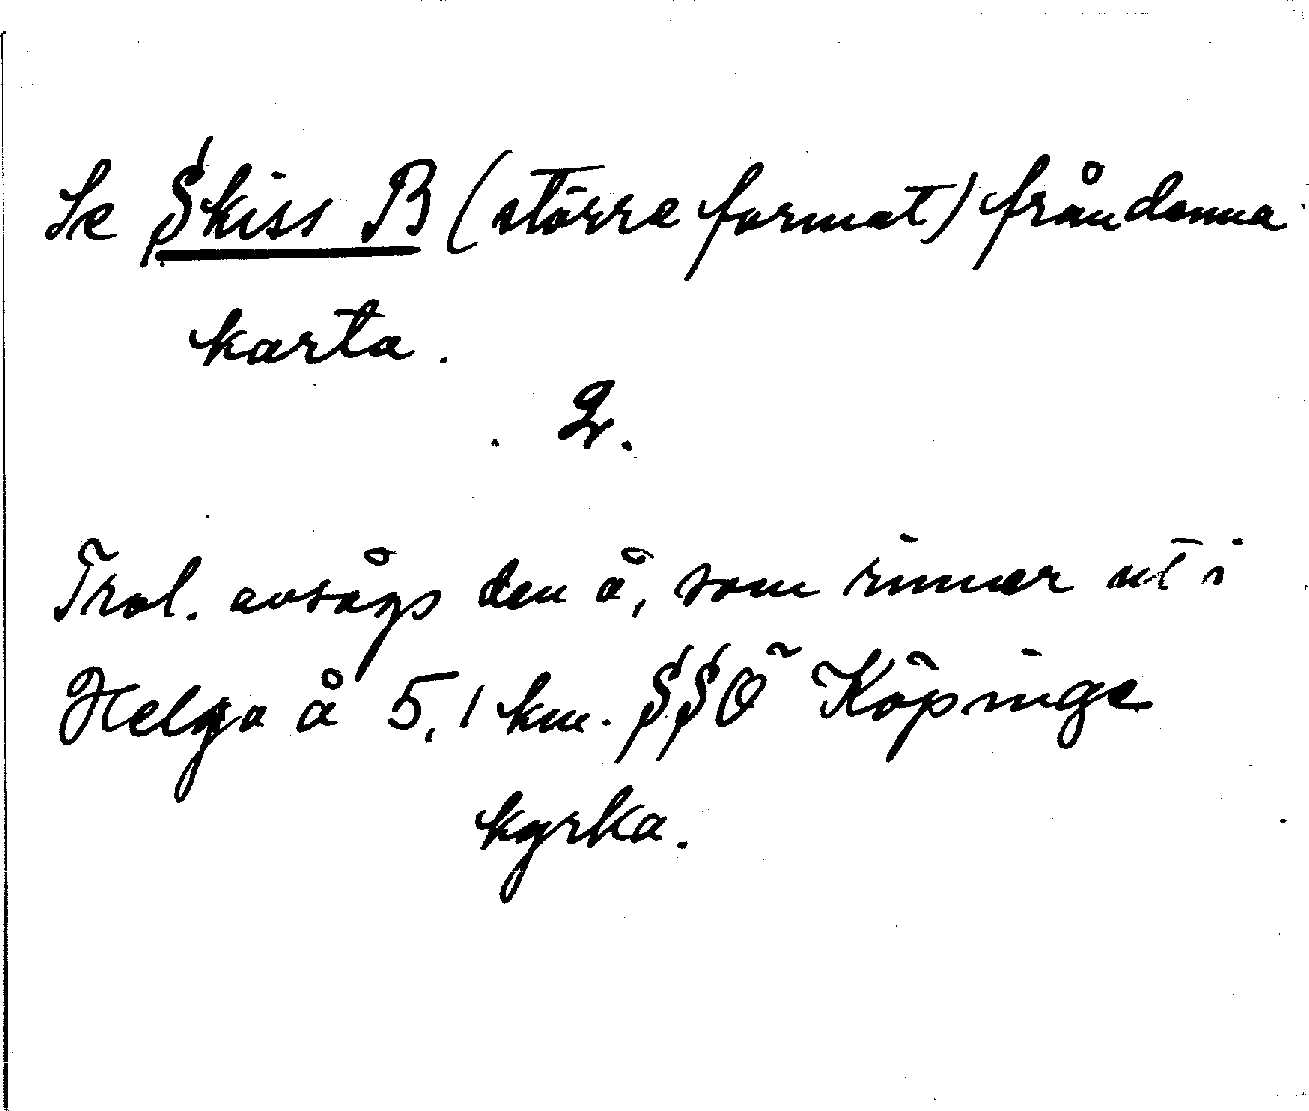 Se Skiss B (större format) från denna
karta.
2.
Trol. avsågs den å, som rinner ut i
Helga å 5,1 km. SSÖ Köpinge
kyrka.